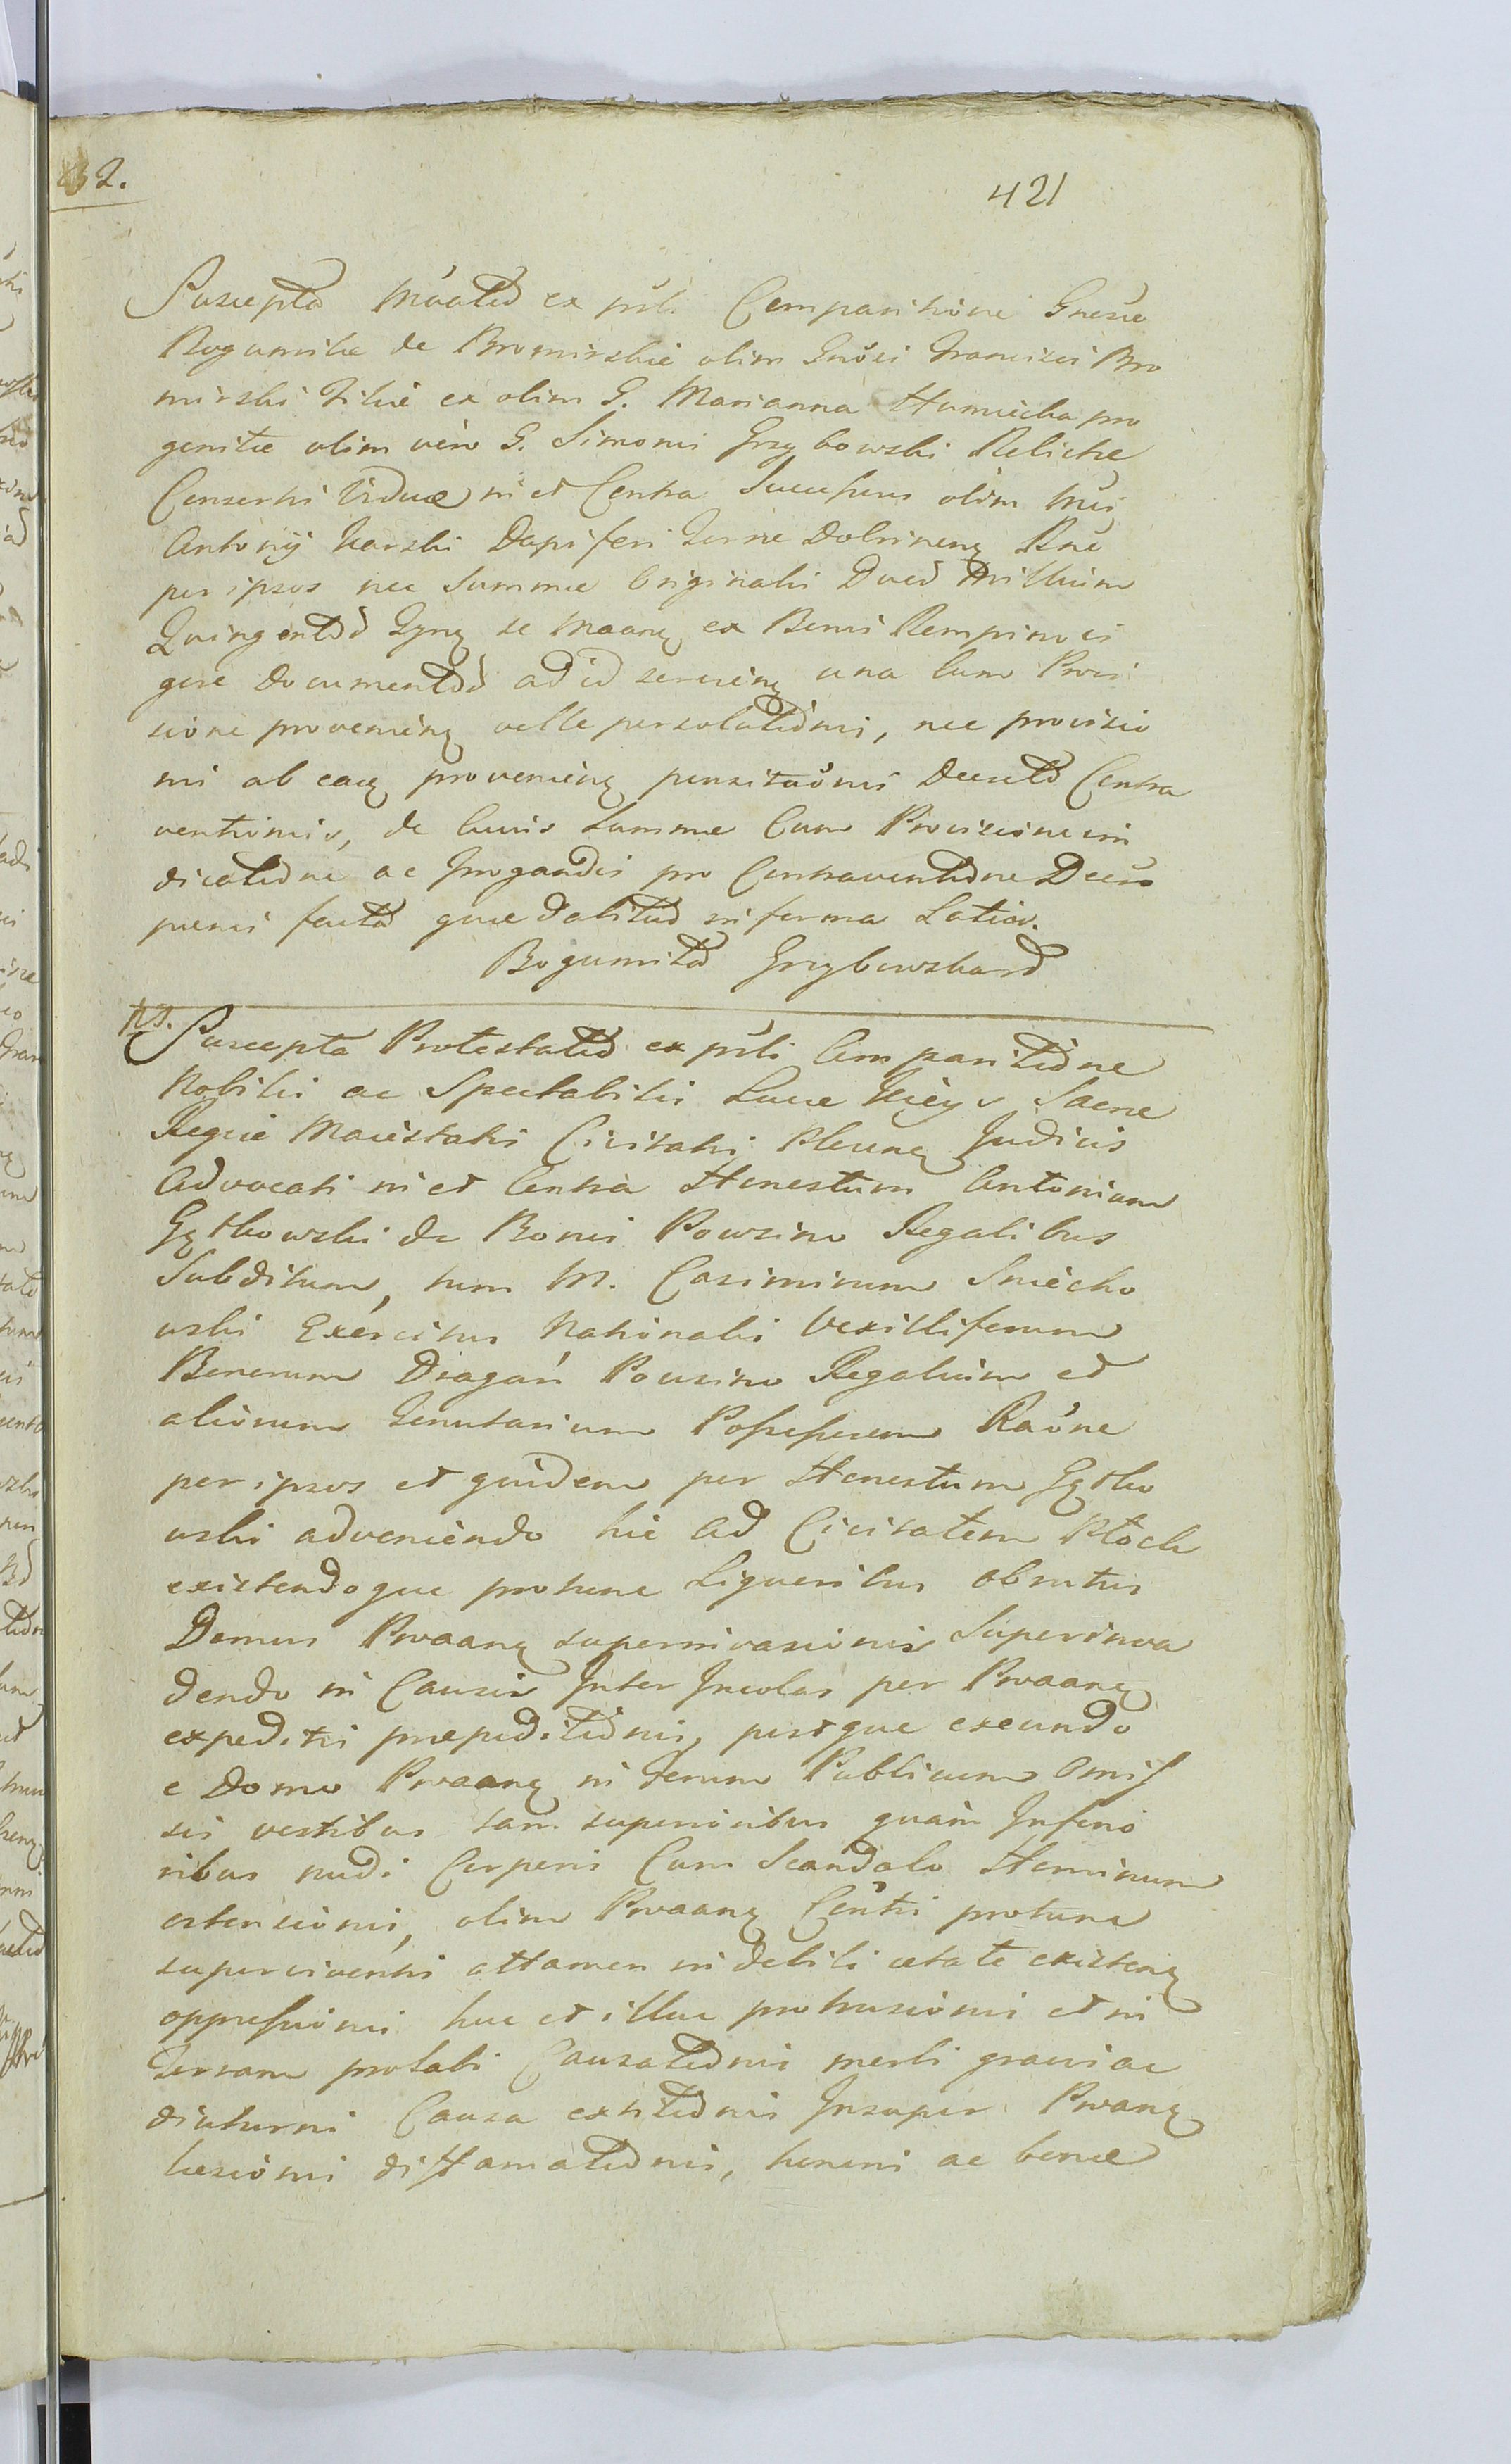 32.
421
Suscepta Mãatio ex prñti Comparitione Gnesæ
Bogumilæ de Bromirskie olim Gnosi Francisci Bro
mirski Filiæ ex olim G. Marianna Humięcka pro
genitæ olim vero G. Simonis Grzybowski Relictæ
Consortis Viduæ in et Contra Successores olim Mñci
Antonij Karski Dapiferi Terræ Dobrinens Rñe
per ipsos nec Summæ Originalis Duod Millium
Quingentod Tynf se Maanę ex Bonis Rempino vi
gore Documentod ad id servienę una Cum Provi
sione provenienę velle persolutionis, nec provisio
nis ab eaę provenienę pensitaõnis Decretõ Contra
ventionis, de huius Summæ Cum Provisione vin
dicatione ac Irrogandis pro Contraventione Decre
pœnis facta quæ dabitur in forma Latiori.
Bogumila Grzybowska

NB.
Suscepta Protestatio ex prñti Comparitione
Nobilis ac Spectabilis Lucæ Sacræ
Regiæ Maiestatis Civitatis Plocenę Judicis
Advocati in et Contra Honestum Antonium
Gętkowski de Bonis Powsino Regalibus
Subditum, tum M. Casimirum Sniecho
wski Exercitus Nationalis Vexilliferum
Bonorum Powsino Regalium et
aliorum Tenutarium Possessorem Raõne
per ipsos et quidem per Honestum Gętko
wski adveniendo hic ad Civitatem Płock
existendoque protunc Liquoribus obrutus
Domus Prõaanę supernivasionis Superinva
dendo in Causis Inter Incolas per Prõaanę
expeditis præpeditionis, postque exeundo
e Domo Prõaanę in Forum Publicum Omis
sis vestibus tam superioribus quam Inferio
ribus nudi Corporis Cum Scandalo Hominum
ostensionis, olim Prõaanę Conthi protunc
superviventis attamen in debili ætate existenę
oppressionis huc et illuc protrusionis et in
Terram prolabi Causationis morbi gravis ac
diuturni Causa extitionis Insuper Prõanę
læsionis diffamationis, honoris ac bonæ